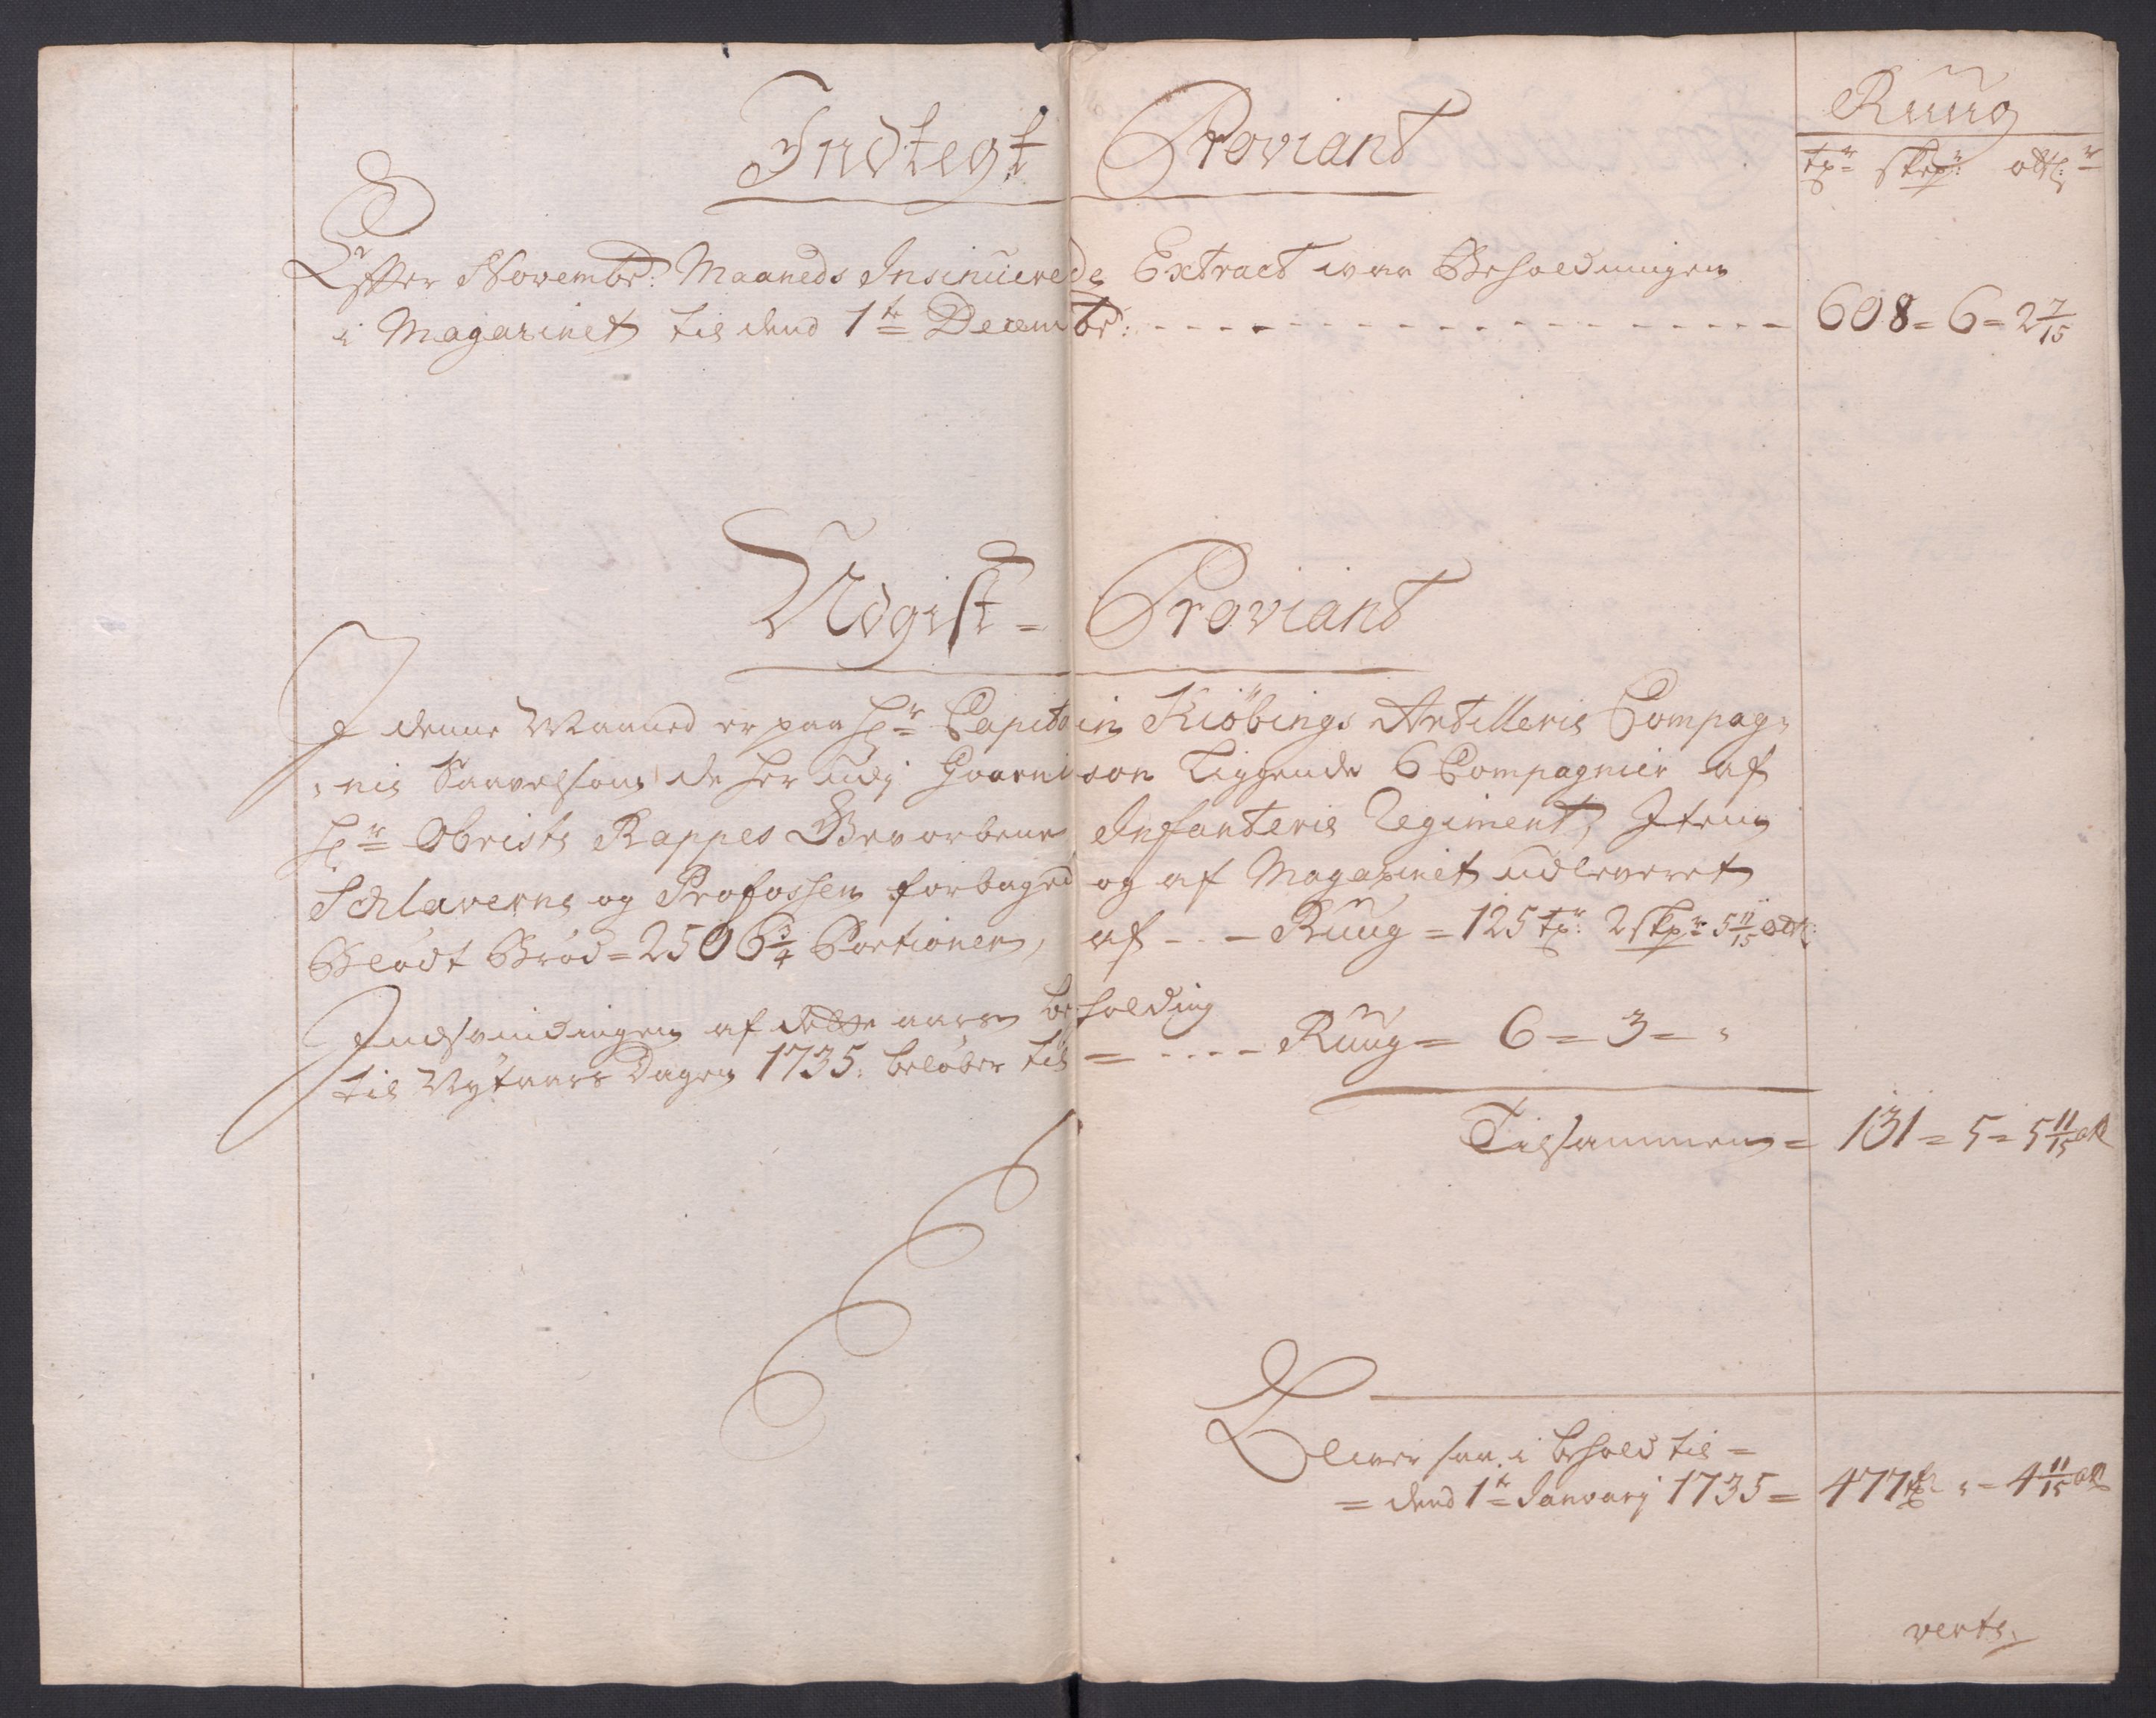 Indtegt Proviant
Ruug
tr: skp: ottl:
Effter Novembr: Maaneds Insinuerede Extract war Beholdningen
i Magazinet til dend 1te Decembr: 608 = 6 = 2 7/15
Udgift = Proviant
I denne Maaned er paa Hr Capitain Kiöbings Artilleris Compag=
=nie Saavelsom de her udj Guarnison Liggende 6 Compagnier af
Hr Obrists Kappes Gevorbene Infanterie Regiment, Item
Schlaverne og Profossen forbaged og af Magazinet udleveret
Blödt Bröd = 2506 3/4 Portioner, af - - - Ruug = 125 tr: 2 skpr 5 11/15 ottl:
Indsvindingen af dette aars beholding
til Nytaars Dagen 1735. belöber til = - - - - Ruug = 6 = 3 = "
Tilsammen = 131 = 5 = 5 11/15 ottl
Bliver saa i behold til =
= dend 1te Januarj 1735 = 477 tr " = 4 11/15 ottl
verte